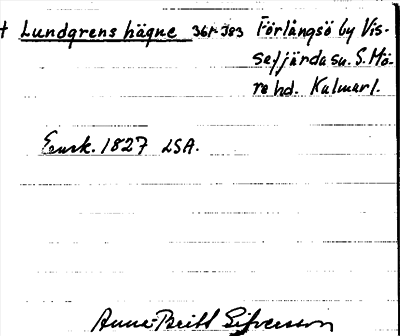 † Lundgrens hägne 36r J83 Förlångsö by Vis-
sefjärda sn. S. Mö-
re hd. Kalmar l.
Ensk. 1827 LSA.
Anna-Britt Sifversson